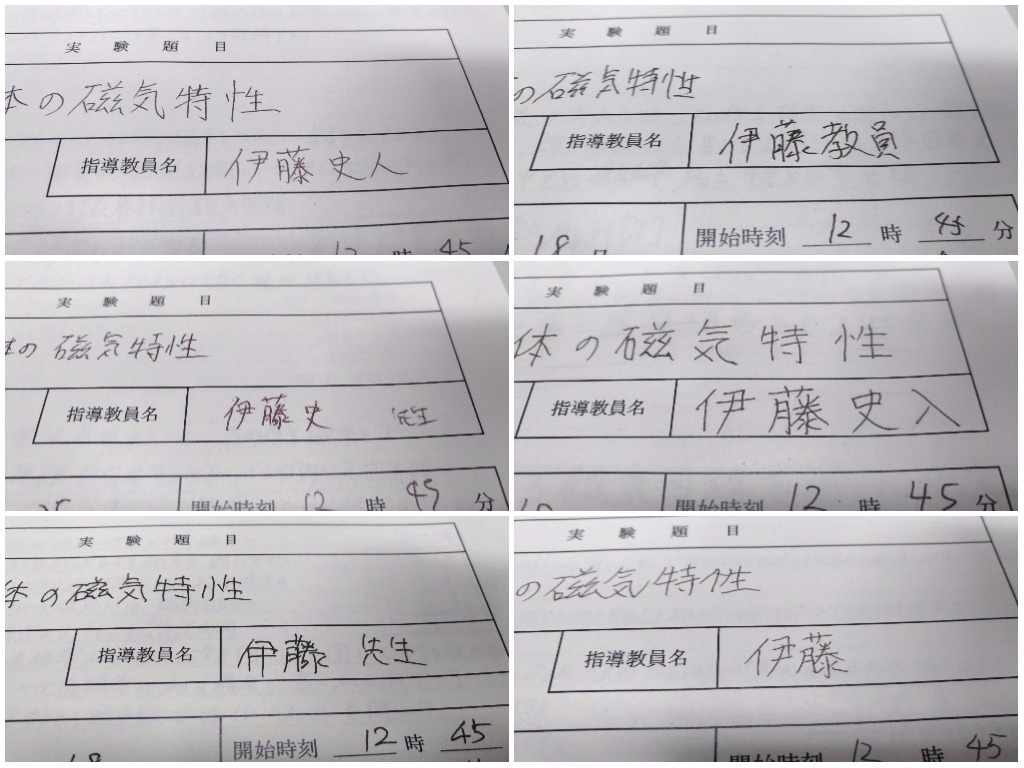 実験題目
体の磁気特性
指導教員名 伊藤史人
12 時 45
実験題目
の磁気特性
指導教員名 伊藤教員
18日 開始時刻 12 時 45 分
実験題目
体の磁気特性
指導教員名 伊藤史 先生
25 開始時刻 12 時 45 分
実験題目
体の磁気特性
指導教員名 伊藤史入
開始時刻 12 時 45 分
実験題目
体の磁気特性
指導教員名 伊藤 先生
18 開始時刻 12 時 45
実験題目
の磁気特性
指導教員名 伊藤
開始時刻 12 時 45